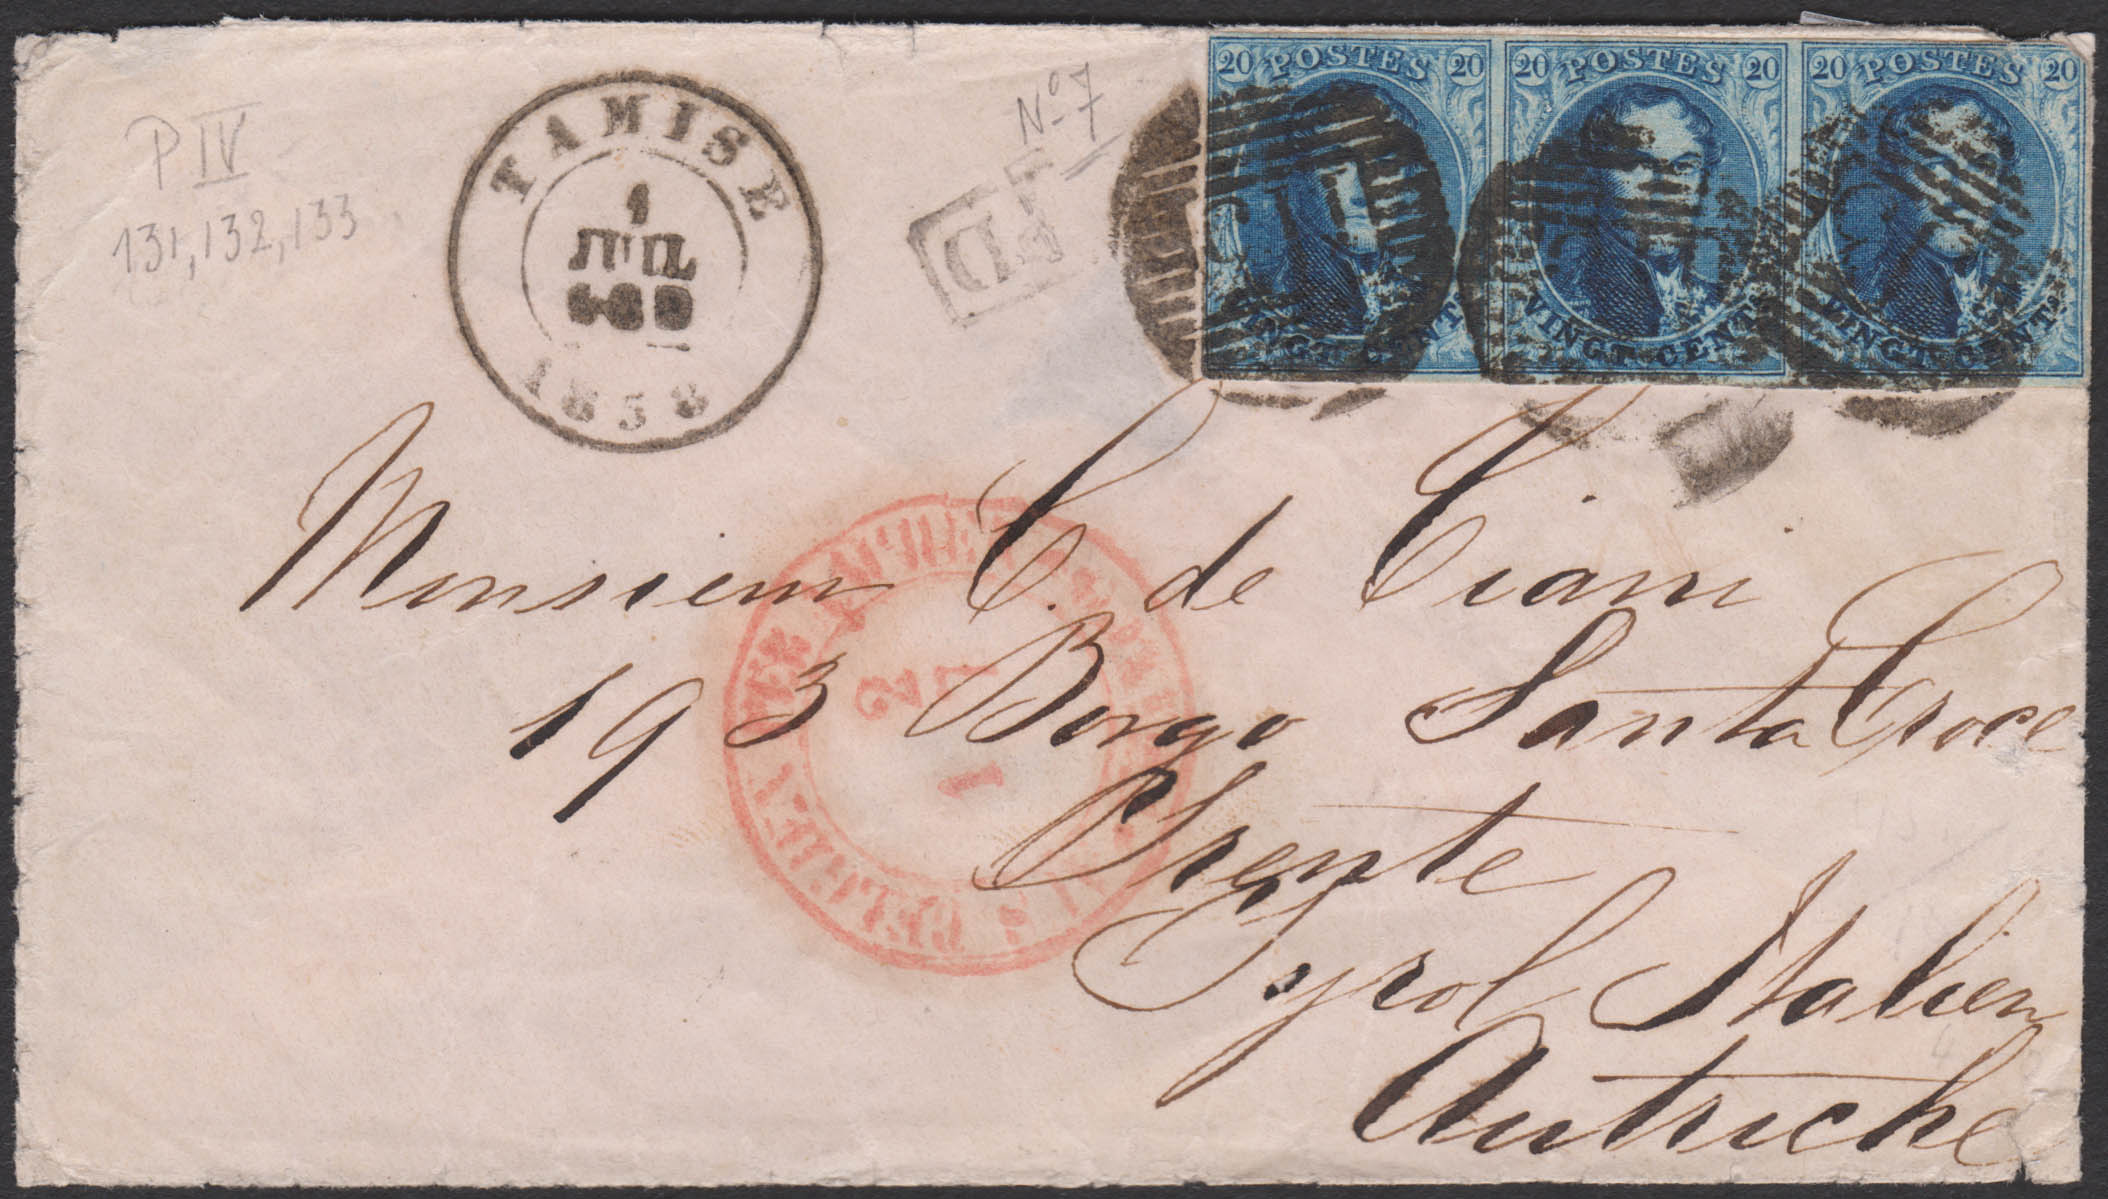 P IV
131, 132, 133
TAMISE
1
JUIL
1858
PD
Nº 7
20 POSTES 20
VINGT CENTS
20 POSTES 20
VINGT CENTS
20 POSTES 20
VINGT CENTS
2
7
1
Monsieur C. de Ciani
193 Borgo Santa Croce
Trente
Tyrol Italien
Autriche